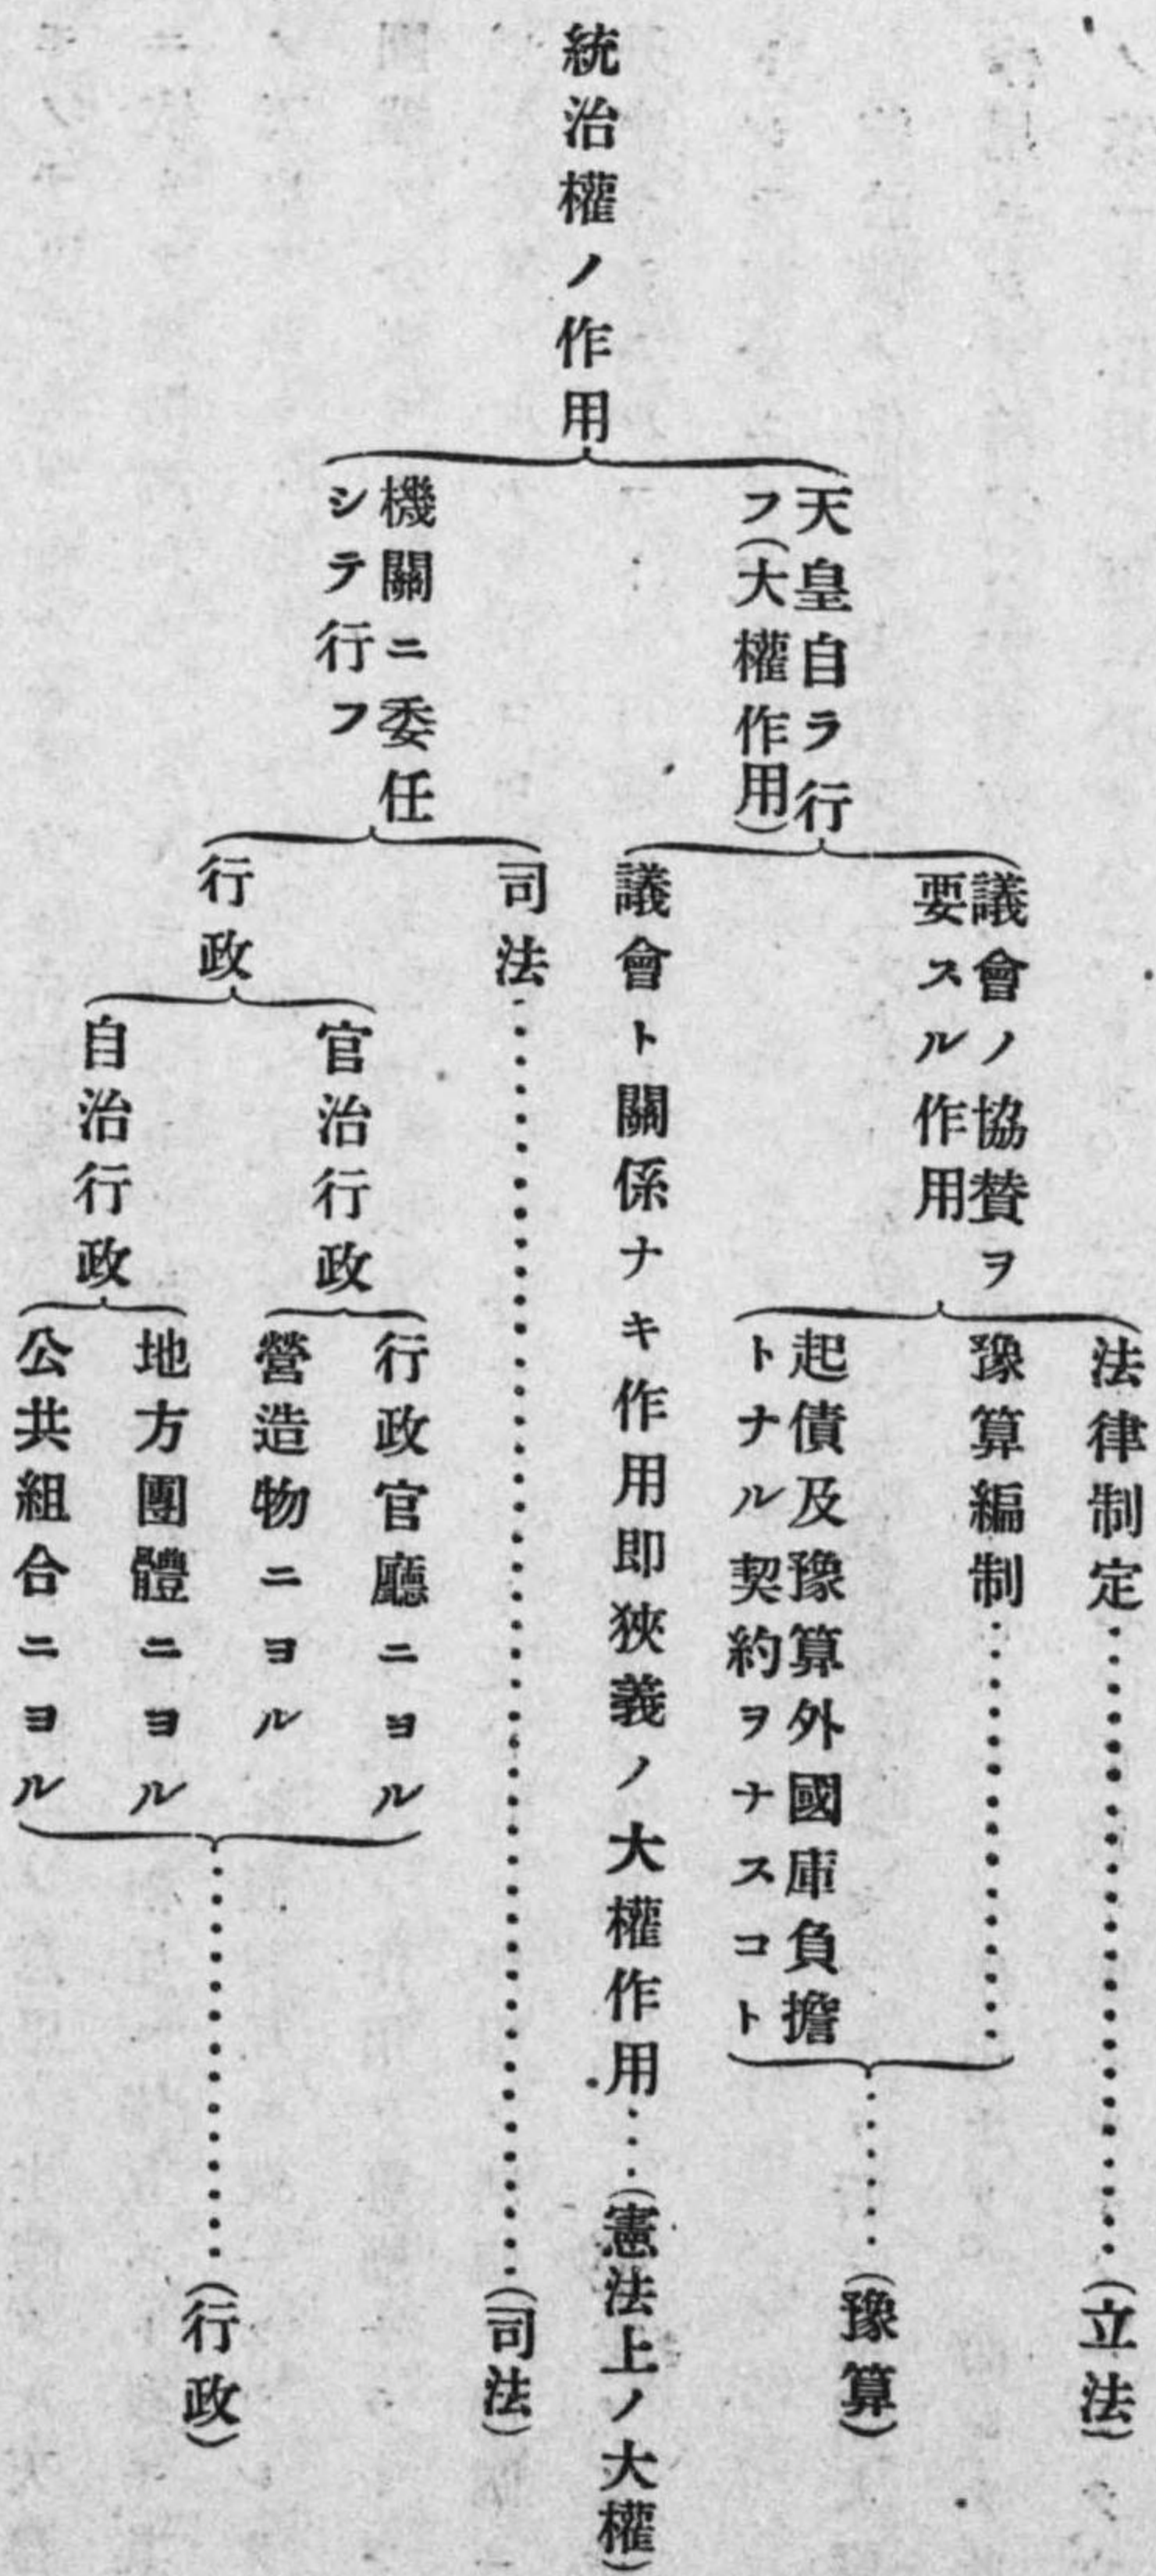 統治權ノ作用
天皇自ラ行
フ(大權作用)
議會ノ協賛ヲ
要スル作用
法律制定
(立法)
豫算編制
起債及豫算外國庫負擔
トナル契約ヲナスコト
(豫算)
議會ト關係ナキ作用即狹義ノ大權作用
(憲法上ノ大權)
機關ニ委任
シテ行フ
司法
(司法)
行政
官治行政
行政官廳ニヨル
營造物ニヨル
自治行政
地方團體ニヨル
公共組合ニヨル
(行政)